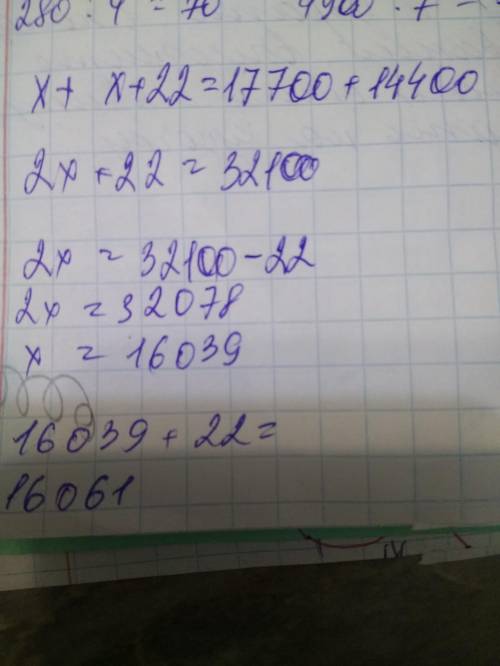 280 : 4 = 70 4900 : 7 =
x + x + 22 = 17700 + 14400
2x + 22 = 32100
2x = 32100 - 22
2x = 32078
x = 16039
16039 + 22 =
16061